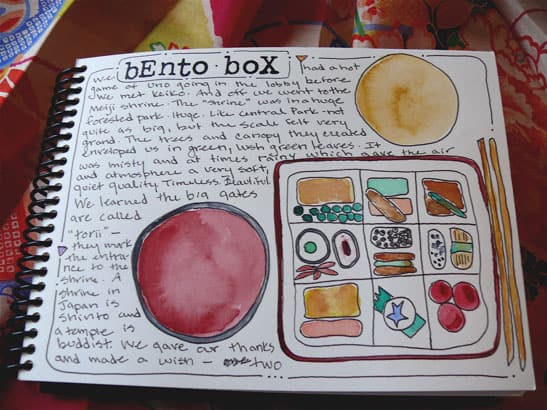 bEnto·boX
We had a hot
game of uno going in the lobby before
we met Keiko. And off we went to the
Meiji shrine. The "shrine" was in a huge
forested park. Huge. Like Central Park - not
quite as big, but the scale felt very
grand. The trees and canopy they created
enveloped us in green, lush green leaves. It
was misty and at times rainy which gave the air
and atmosphere a very soft,
quiet quality. Timeless. Beautiful.
We learned the big gates
are called
"torii" -
they mark
the entra-
nce to the
shrine. A
shrine in
Japan is
shinto and
a temple is
buddist. We gave our thanks
and made a wish - two